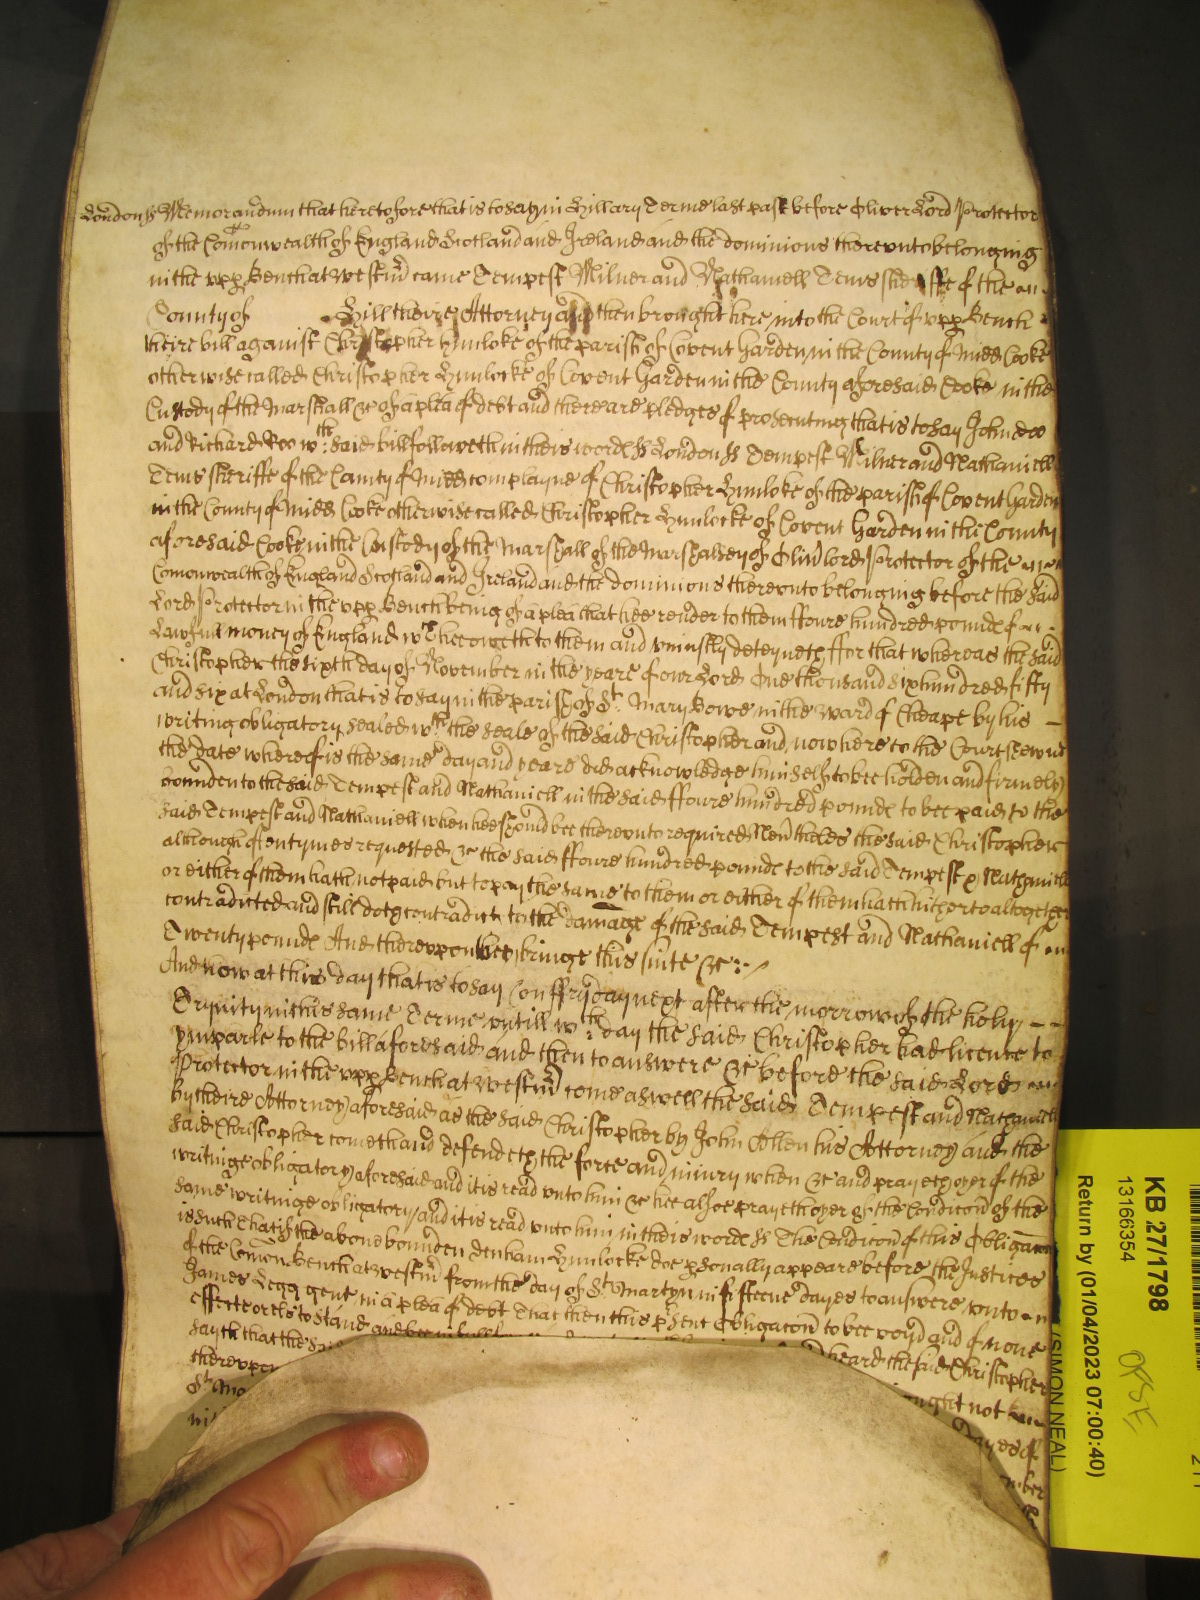 London ss Memorandum that heretofore that is to say in Hillary Terme last past before Oliver Lord Protector
of the Comonwealth of England Scotland and Ireland and the dominions thereunto belonging
in the upp Bench at Westmr came Tempest Milner and Nathaniell Tems sheriffe of the
County of Hill theire Attorney and then brought here into the Court of upp Bench
theire bill against Christopher Hunloke of the parish of Covent Garden in the County of Midd Cooke
otherwise called Christopher Hunlocke of Covent Garden in the County aforesaid Cooke in the
Custody of the Marshall &c of a plea of debt and there are pledges of prosecuting that is to say John doo
and Richard Roo wch said bill followeth in theis words ss London ss Tempest Milner and Nathaniell
Tems sheriffe of the County of Midd complayne of Christopher Hunloke of the parish of Covent Garden
in the County of Midd Cooke otherwise called Christopher Hunlocke of Covent Garden in the County
aforesaid Cooke in the Custody of the Marshall of the Marshalsey of Oliver lord Protector of the
Comonwealth of England Scotland and Ireland and the dominions thereunto belonging before the said
Lord Protector in the upp Bench being of a plea that hee render to them ffoure hundred pounds of
Lawfull money of England wch hee oweth to them and uniustly deteyneth ffor that whereas the said
Christopher the sixth day of November in the yeare of our Lord One thousand six hundred fifty
and six at London that is to say in the parish of St Mary Bowe in the Ward of Cheape by his
writing obligatory sealed wth the seale of the said Christopher and now here to the Court shewne
the date whereof is the same day and yeare did acknowledge himselfe to bee holden and firmely
bounden to the said Tempest and Nathaniell in the said ffoure hundred pounds to bee paid to the
said Tempest and Nathaniell when hee should bee thereunto required Neverthelesse the said Christopher
although oftentymes requested &c the said ffoure hundred pounds to the said Tempest & Nathaniell
or either of them hath not paid but to pay the same to them or either of them hath hitherto altogether
contradicted and still doth contradict to the damage of the said Tempest and Nathaniell of
Twenty pounds And thereupon hee bringe this suite &c
And now at this day that is to say on ffryday next after the morrow of the holy
Trynity in this same Terme untill wch day the said Christopher had licence to
ymparle to the bill aforesaid and then to answere &c before the said Lord
Protector in the upp Bench at Westmr come aswell the said Tempest and Nathaniell
by theire Attorney aforesaid as the said Christopher by John Allen his Attorney and the
said Christopher cometh and defendeth the force and iniury when &c and prayeth oyer of the
writinge obligatory aforesaid and it is read unto him &c hee alsoe prayeth oyer of the Condicon of the
same writinge obligatory and it is read unto him in theis words ss The Condicon of this Obligacon
is such that if the above bounden Denham Hunlocke doe psonally appeare before the Justices
of the Comon Bench at Westmr from the day of St Martyn in fifteene dayes to answere unto
James Legg gent in a plea of debt That then this psent Obligacon to bee voyd and of none
effecte or els to stand and bee in full heard the said Christopher
sayth that the said ought not
thereupon dayes of
St Ma
KB 27/1798
13166354
Return by (01/04/2023 07:00:40)
(SIMON NEAL)